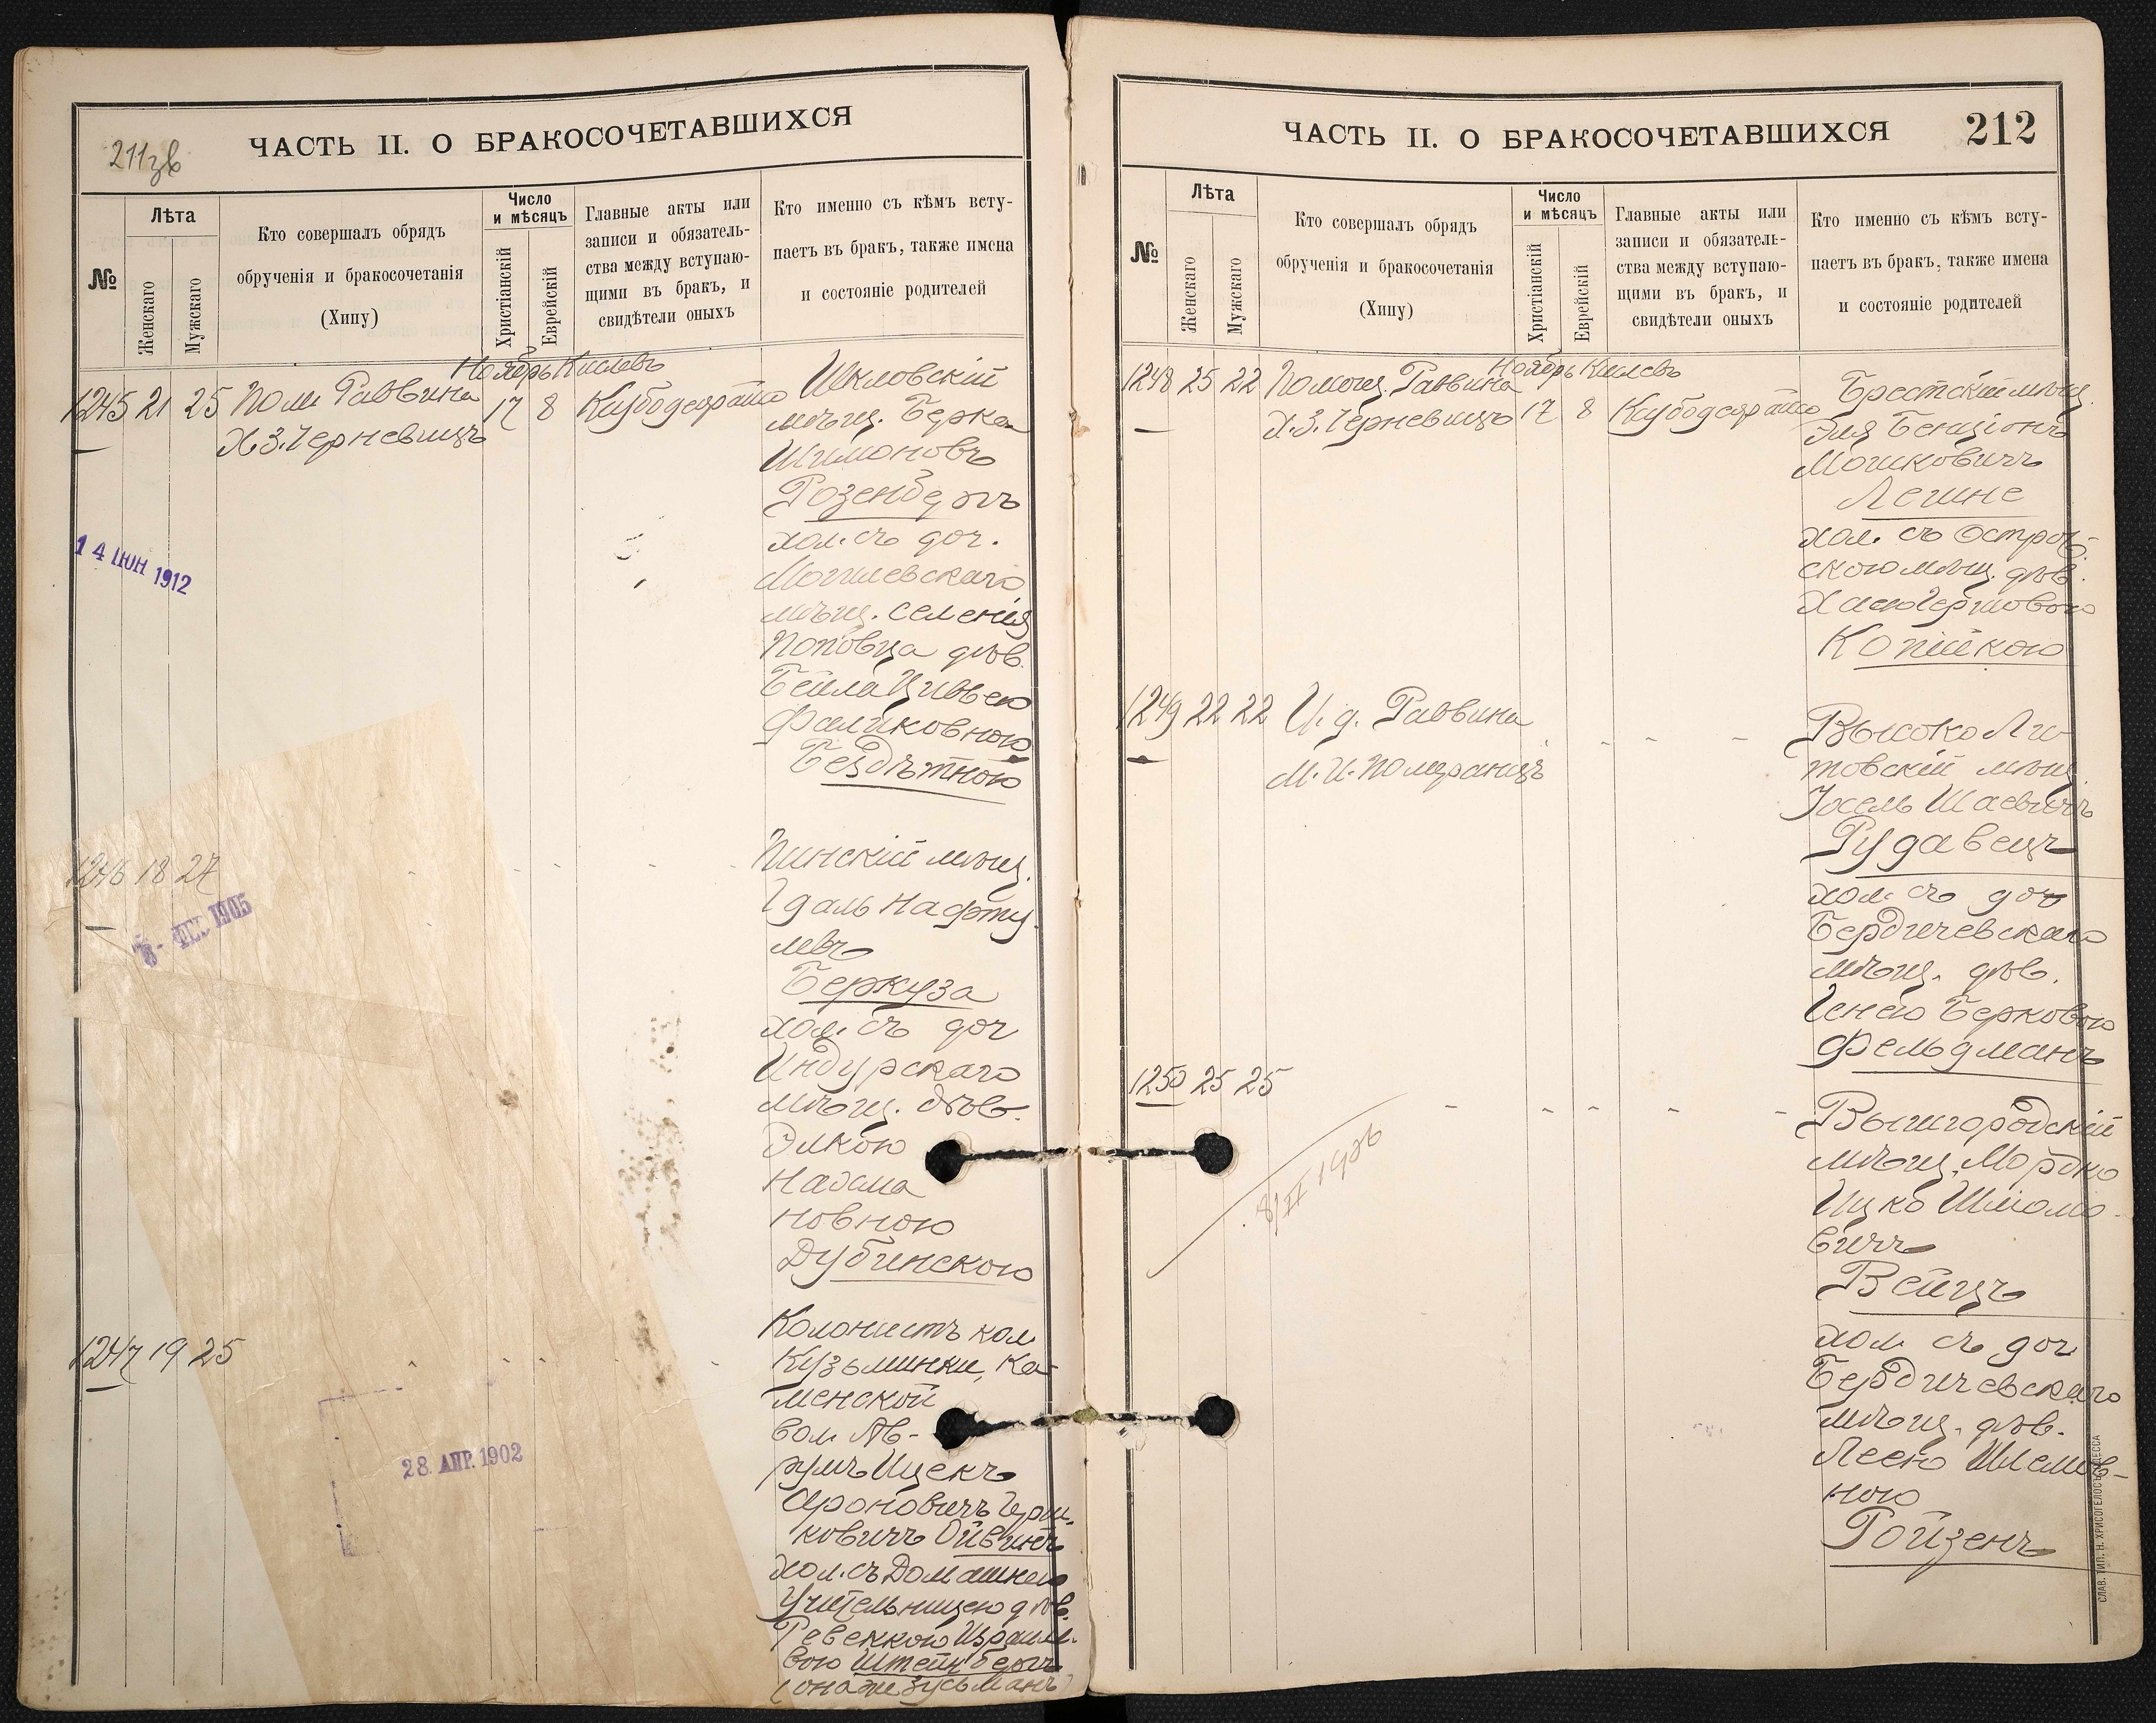 211зв
ЧАСТЬ II. О БРАКОСОЧЕТАВШИХСЯ
№
Лѣта
Женскаго
Мужскаго
Кто совершалъ обрядъ
обрученія и бракосочетанія
(Хипу)
Число
и мѣсяцъ
Христіанскій
Еврейскій
Главные акты или
записи и обязатель-
ства между вступаю-
щими въ бракъ, и
свидѣтели оныхъ
Кто именно съ кѣмъ всту-
паетъ въ бракъ, также имена
и состояніе родителей
Ноябрь Кислевъ
1245 21 25 Пом. Раввина 17 8
Х.З. Черневицъ
Шкловскій
мѣщ. Берка
Шимоновъ
Розенбергъ
хол. съ доч.
Могилевскаго
мѣщ. селенія
Поповца дѣв.
Бейла Цивьею
Фаликовною
Бездѣтною
14 ІЮН 1912
1246 18 27
8- ФЕВ 1905
Пинскій мѣщ.
Гдаль Нафту
левъ
Беркуза
хол. съ доч
Индурскаго
мѣщ. дѣв.
Элкою
Нахма
новною
Дубинскою
1247 19 25
28. АПР. 1902
Колонистъ кол.
Кузьминки, Ка-
менской
вол. Аб-
румъ Ицекъ
Ароновичъ Герш-
ковичъ Ойвинъ
хол. съ Домашнею
Учительницею дѣв.
Ревеккою Израил.
вою Штейнбергъ
(она же Зусьманъ)
ЧАСТЬ II. О БРАКОСОЧЕТАВШИХСЯ
212
№
Лѣта
Женскаго
Мужскаго
Кто совершалъ обрядъ
обрученія и бракосочетанія
(Хипу)
Число
и мѣсяцъ
Христіанскій
Еврейскій
Главные акты или
записи и обязатель-
ства между вступаю-
щими въ бракъ, и
свидѣтели оныхъ
Кто именно съ кѣмъ всту-
паетъ въ бракъ, также имена
и состояніе родителей
Ноябрь Кислевъ
1248 25 22 Помощ. Раввина 17 8
Х.З. Черневицъ
Брестскій мѣщ.
Эля Бенціонъ
Мошковичъ
Лешне
хол. съ Остров-
скою мѣщ. дѣв.
Хаею Гершовою
Копійкою
1249 22 22 И. д. Раввина
М. И. Померанцъ
Высоко Ли
товскій мѣщ.
Іосель Шаевичъ
Рудавецъ
хол. съ доч
Бердичевскаго
мѣщ. дѣв.
Генею Берковою
Фельдманъ
1250 25 25
8/II 1906
Вышгородскій
мѣщ. Мордко
Ицко Шліомо-
вичъ
Вейцъ
хол. съ доч
Бердичевскаго
мѣщ. дѣв.
Леею Шлемов-
ною
Ройзенъ
СЛАВ. ТИП. Н. ХРИСОГЕЛОСЪ ОДЕССА